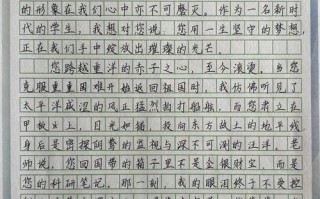 的形象在我们心中亦不可磨灭。作为一名新时
代的学生，我想对您说，您用一生坚守的梦想，
正在我们手中绽放出璀璨的光芒。
您跨越重洋的赤子之心，至今滚烫。当您
克服重重困难开始返回祖国时，我仿佛听见了
太平洋咸涩的风正猛烈拍打船舷，而您肃立在
甲板之上，目光如炬，投向东方故土的地平线
身后是密探阴鸷的监视与深不可测的汪洋。老
师说，您回国带的箱子里不是金银财宝，而是
您的科研笔记。那一刻，我的眼泪终于不受控